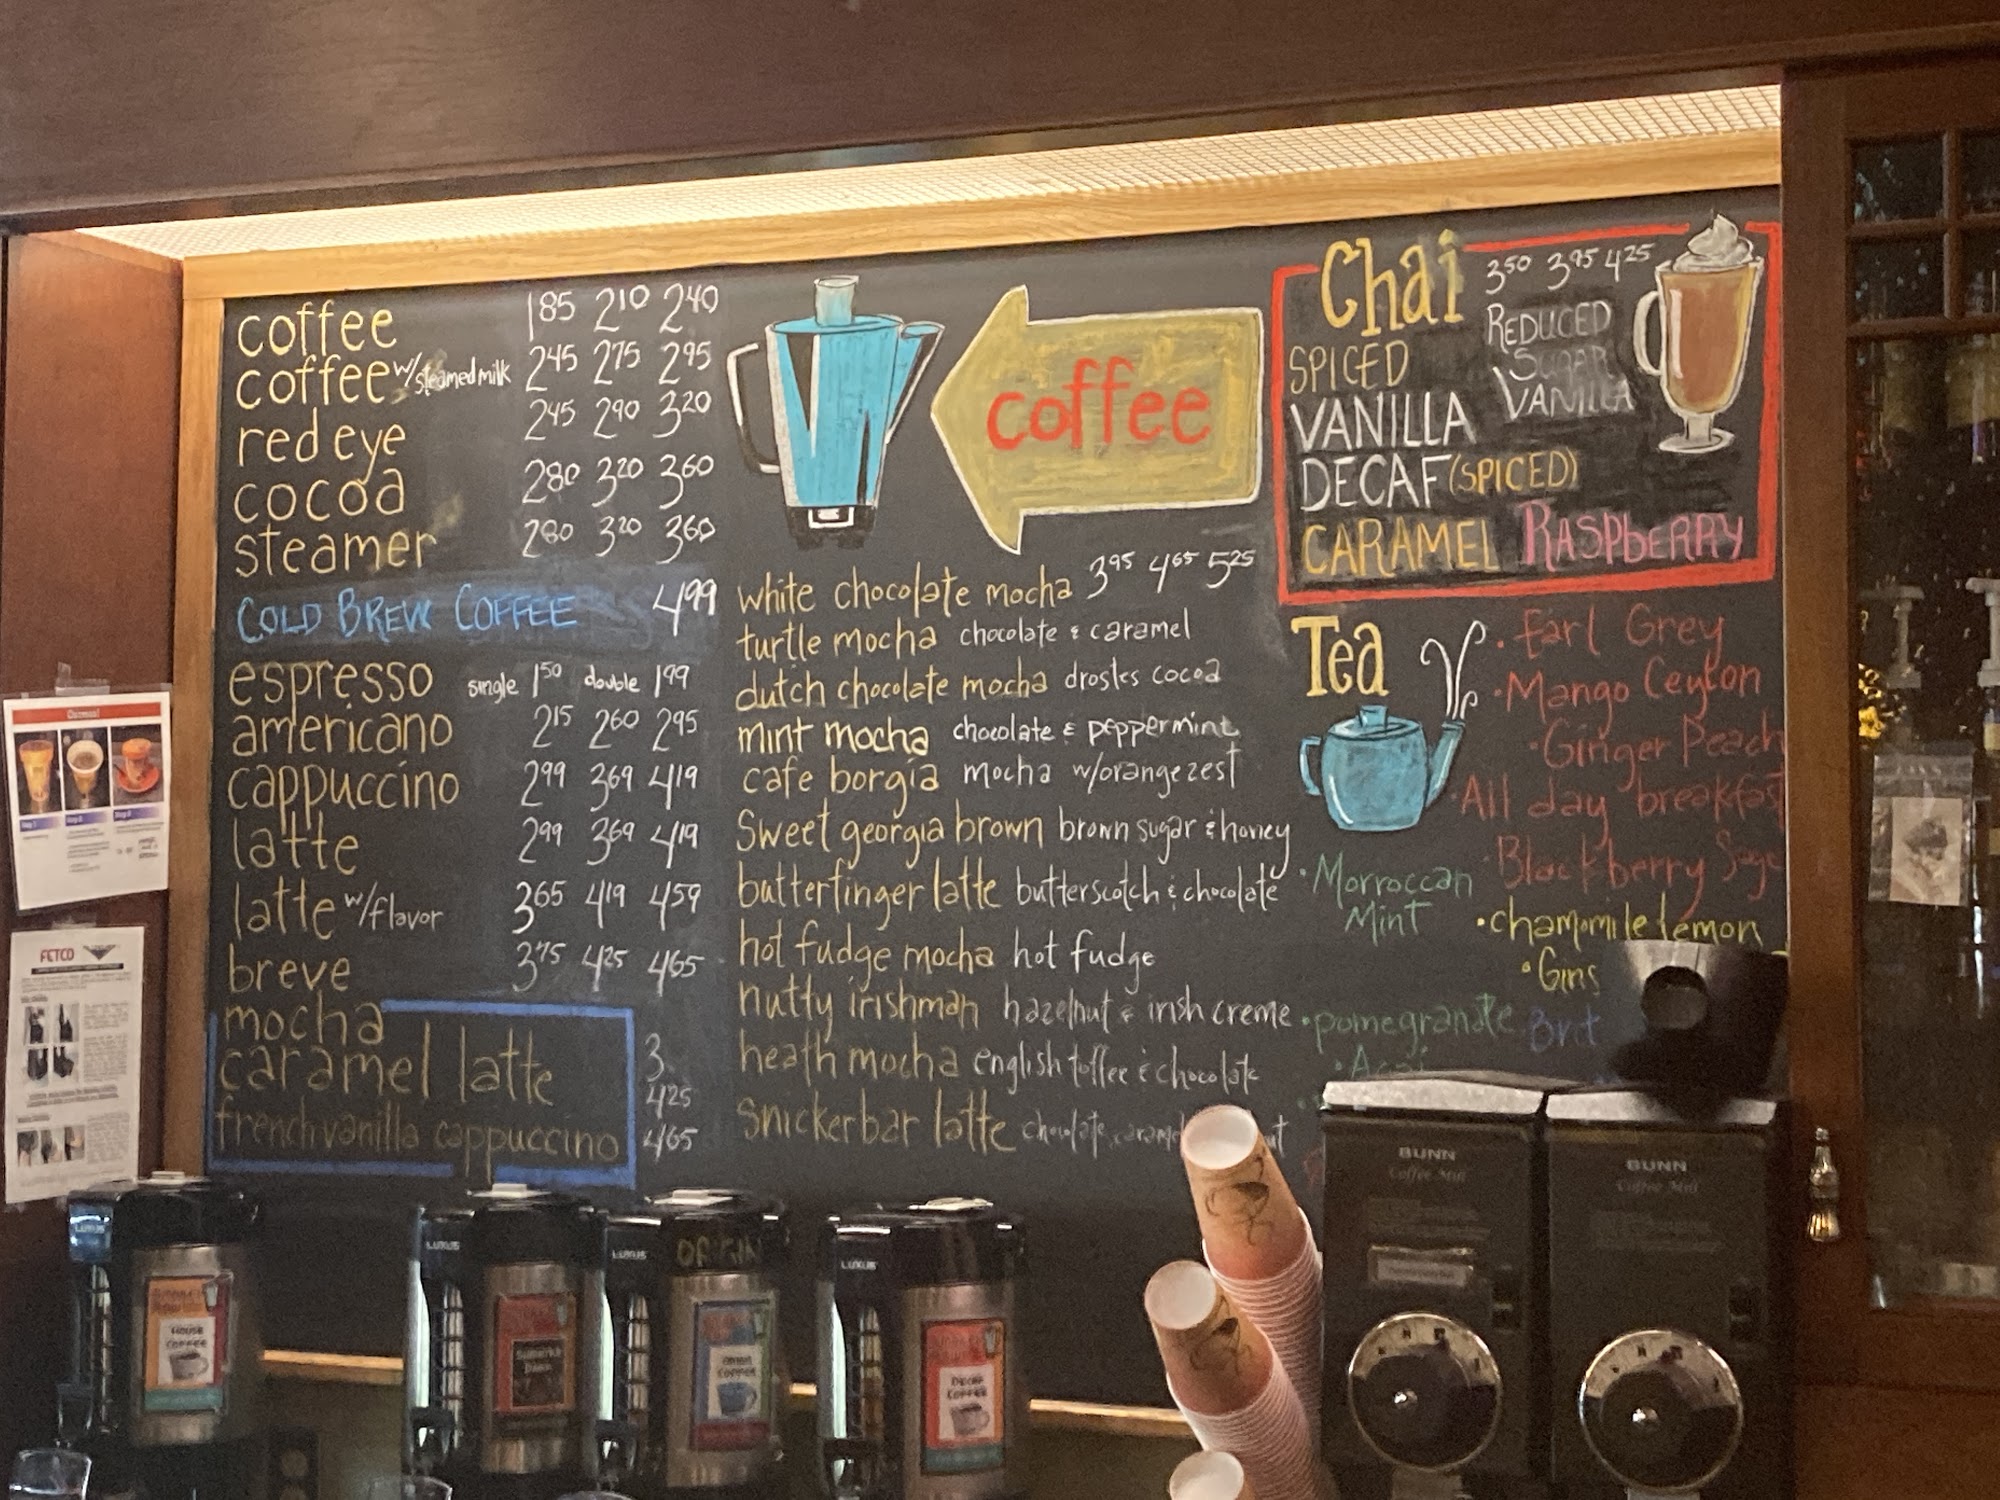 coffee 185 210 240
coffee w/steamed milk 245 275 295
red eye 245 290 320
cocoa 280 320 360
steamer 280 320 360
COLD BREW COFFEE 499
espresso single 150 double 199
americano 215 260 295
cappuccino 299 369 419
latte 299 369 419
latte w/flavor 365 419 459
breve 375 425 465
mocha
caramel latte 3
425
french vanilla cappuccino 465
coffee
white chocolate mocha 395 465 525
turtle mocha chocolate & caramel
dutch chocolate mocha drostes cocoa
mint mocha chocolate & peppermint
cafe borgia mocha w/orange zest
Sweet georgia brown brown sugar & honey
butterfinger latte butterscotch & chocolate
hot fudge mocha hot fudge
nutty irishman hazelnut & irish creme
heath mocha english toffee & chocolate
snickerbar latte chocolate,
Chai 350 395 425
REDUCED
SUGAR
VANILLA
SPICED
VANILLA
DECAF (SPICED)
CARAMEL RASPBERRY
Tea
• Earl Grey
• Mango Ceylon
• Ginger Peach
• All day breakfast
• Blackberry Sage
• Morroccan
Mint
• chamomile lemon
• Gins
• pomegranate
• Acai
FETCO
BUNN
Coffee Mill
BUNN
Coffee Mill
LUXUS
LUXUS
LUXUS
LUXUS
ORIGIN
HOUSE
COFFEE
DECAF
COFFEE